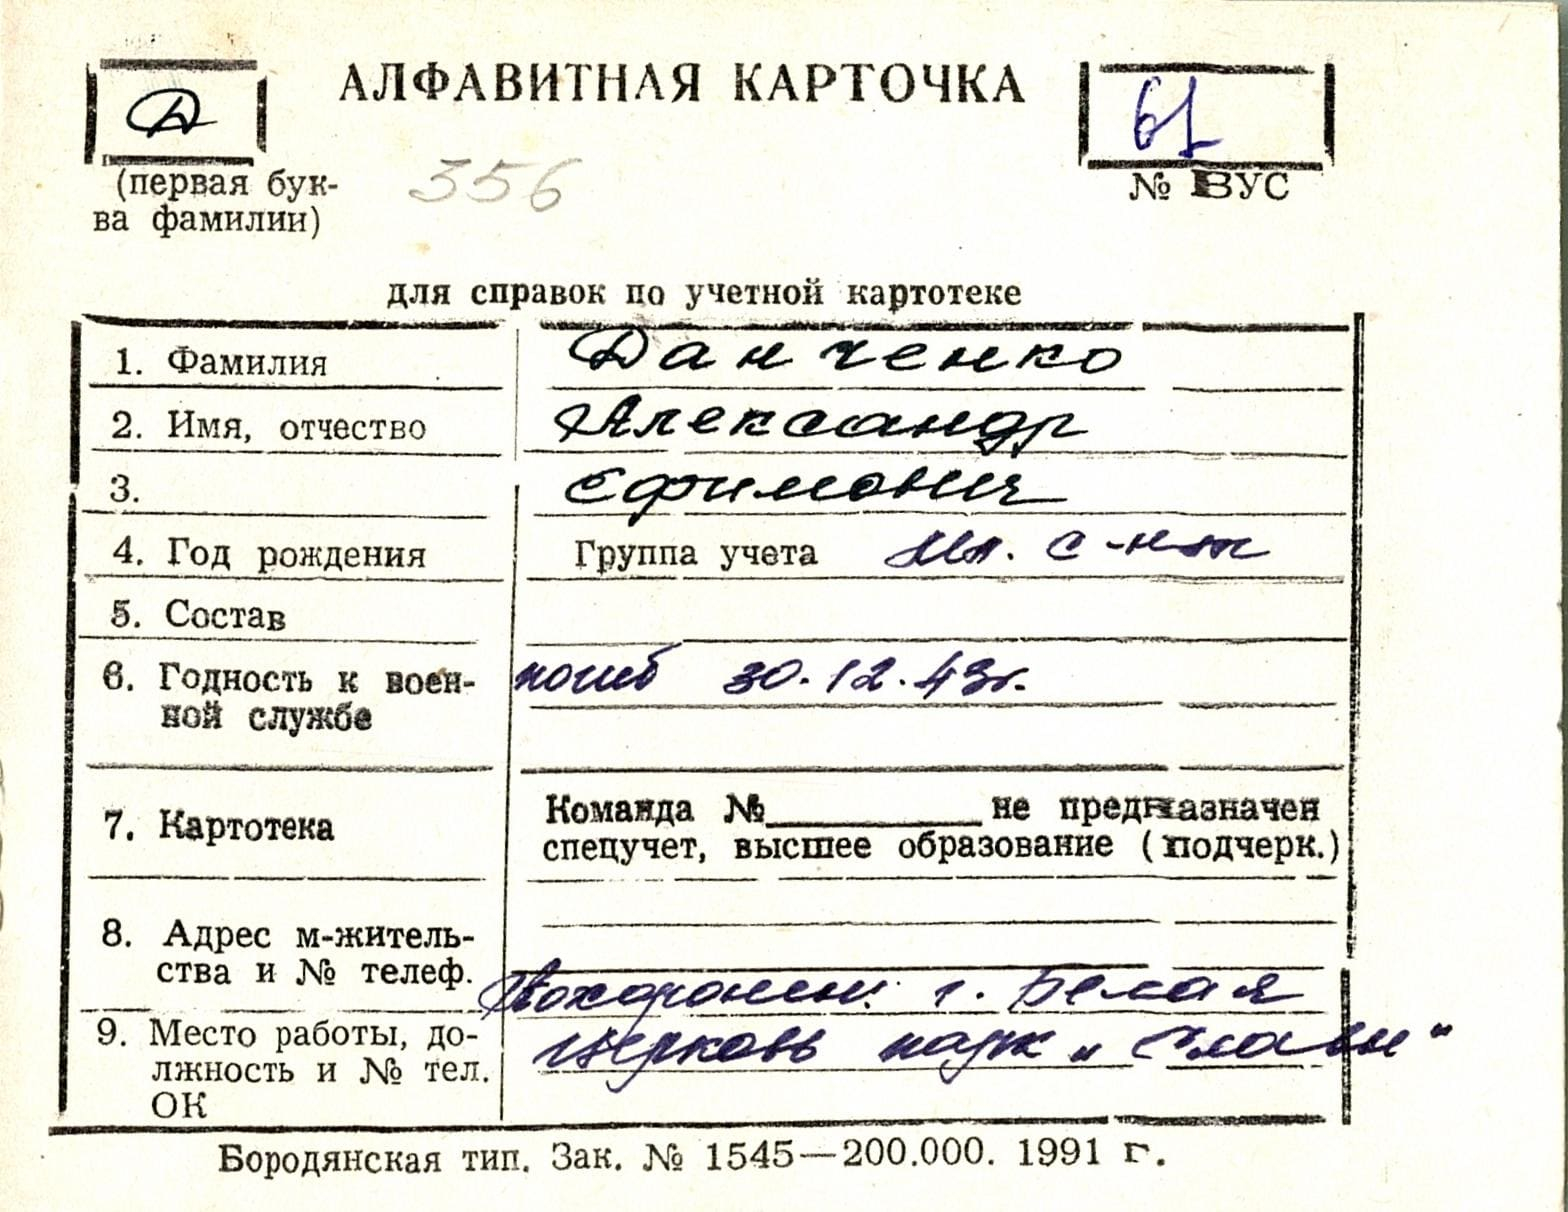 АЛФАВИТНАЯ КАРТОЧКА
Д
61
(первая бук-
ва фамилии)
356
№ ВУС
для справок по учетной картотеке
1. Фамилия Данченко
2. Имя, отчество Александр
3. Ефимович
4. Год рождения Группа учета Мл. с-нт
5. Состав
6. Годность к воен-
ной службе
погиб 30.12.43г.
7. Картотека
Команда №__________ не предназначен
спецучет, высшее образование (подчерк.)
8. Адрес м-житель-
ства и № телеф.
Похоронен: г. Белая
Церковь парк „Славы"
9. Место работы, до-
лжность и № тел.
ОК
Бородянская тип. Зак. № 1545—200.000. 1991 г.